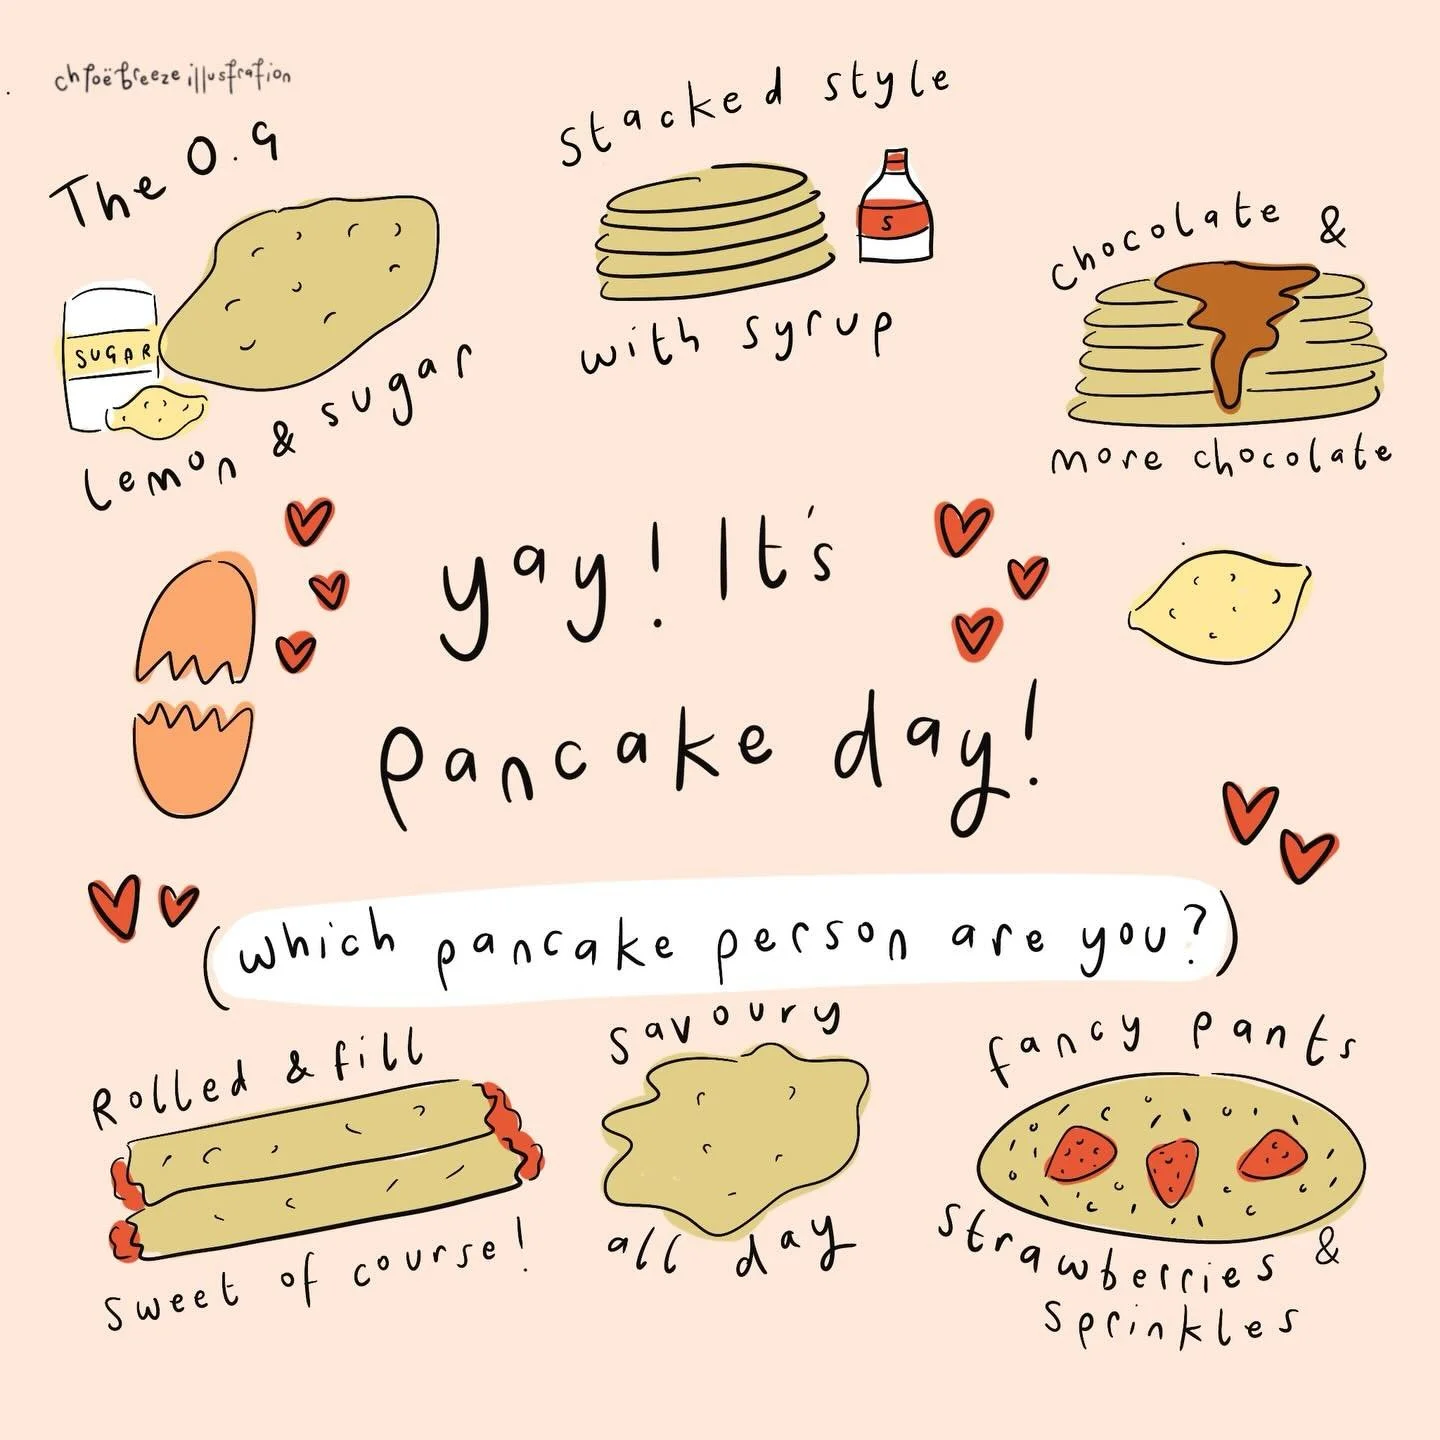 chloëbreezeillustration
The O.G
SUGAR
Lemon & sugar
Stacked style
S
with syrup
Chocolate &
more chocolate
yay! It's
pancake day!
(which pancake person are you?)
Rolled & fill
Sweet of course!
Savoury
all day
fancy pants
Strawberries &
Sprinkles